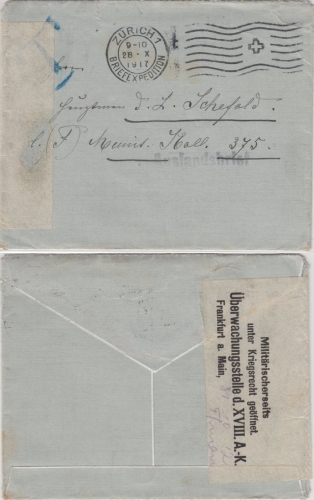 ZÜRICH 1
9-10
28·X
1917
BRIEFEXPEDITION
Herrn
Hauptmann d. L. Schefold.
L. (F) Munit. Koll. 375.
Militärischerseits
unter Kriegsrecht geöffnet.
Überwachungsstelle d. XVIII. A.-K.
Frankfurt a. Main,